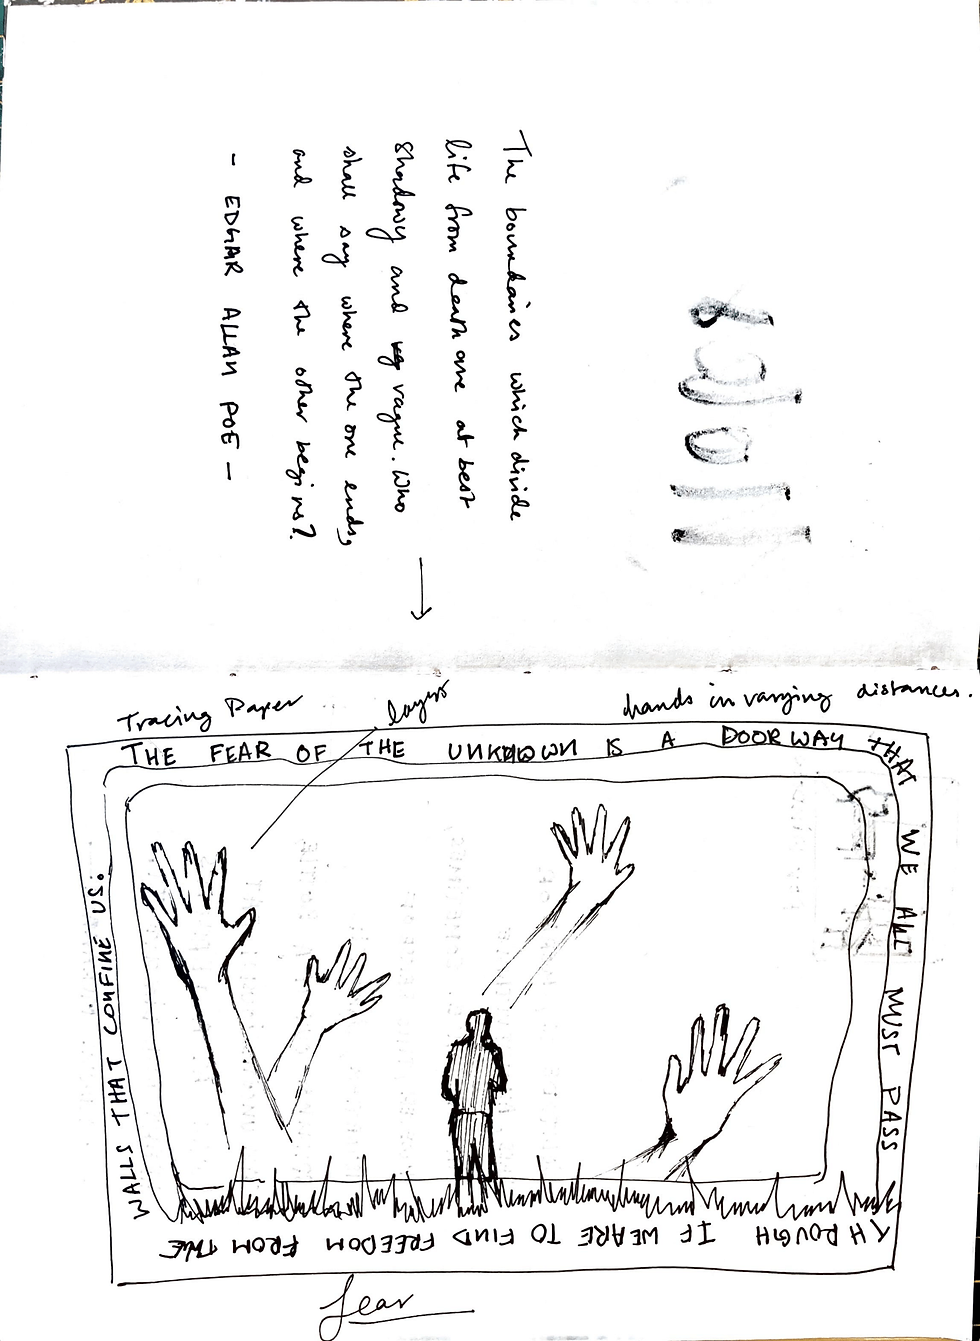 The boundaries which divide
life from death are at best
Shadowy and vague. Who
shall say where the one ends,
and where the other begins?
- EDGAR ALLAN POE -
Tracing Paper
layers
hands in varying distances.
THE FEAR OF THE UNKNOWN IS A DOORWAY THAT
WE ALL MUST PASS
THROUGH IF WE ARE TO FIND FREEDOM FROM THE
WALLS THAT CONFINE US.
fear